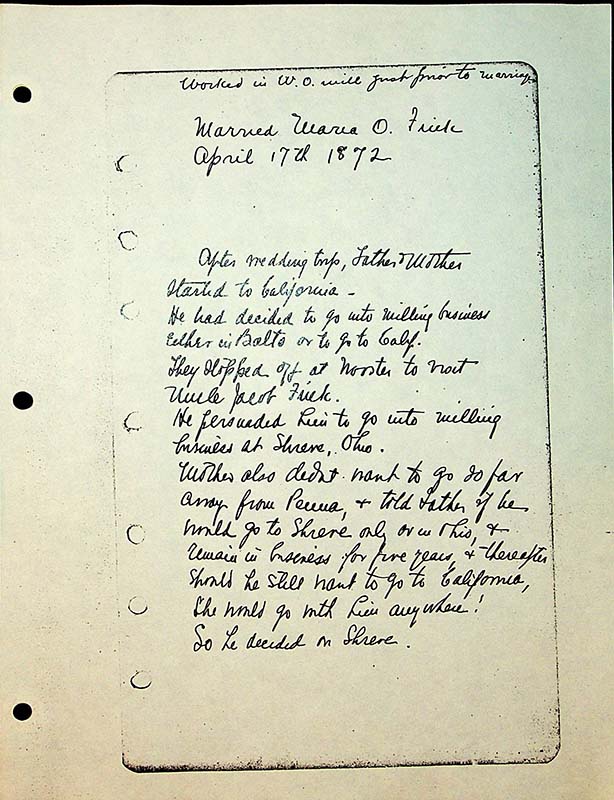 Worked in W. O. mill just prior to marriage
Married Maria O. Frick
April 17th 1872
After wedding trip, Father & Mother
started to California -
He had decided to go into milling business
either in Balto or to go to Calif.
They stopped off at Wooster to visit
Uncle Jacob Frick.
He persuaded him to go into milling
business at Shreve, Ohio.
Mother also didnt want to go so far
away from Penna, & told Father if he
would go to Shreve only or in Ohio, &
remain in business for five years, & thereafter
should he still want to go to California,
she would go with him anywhere!
So he decided on Shreve.